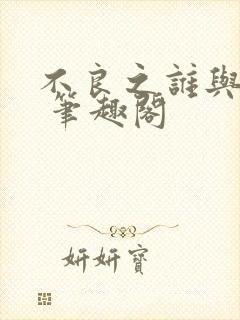 不良之誰與
筆趣閣
妍妍寶